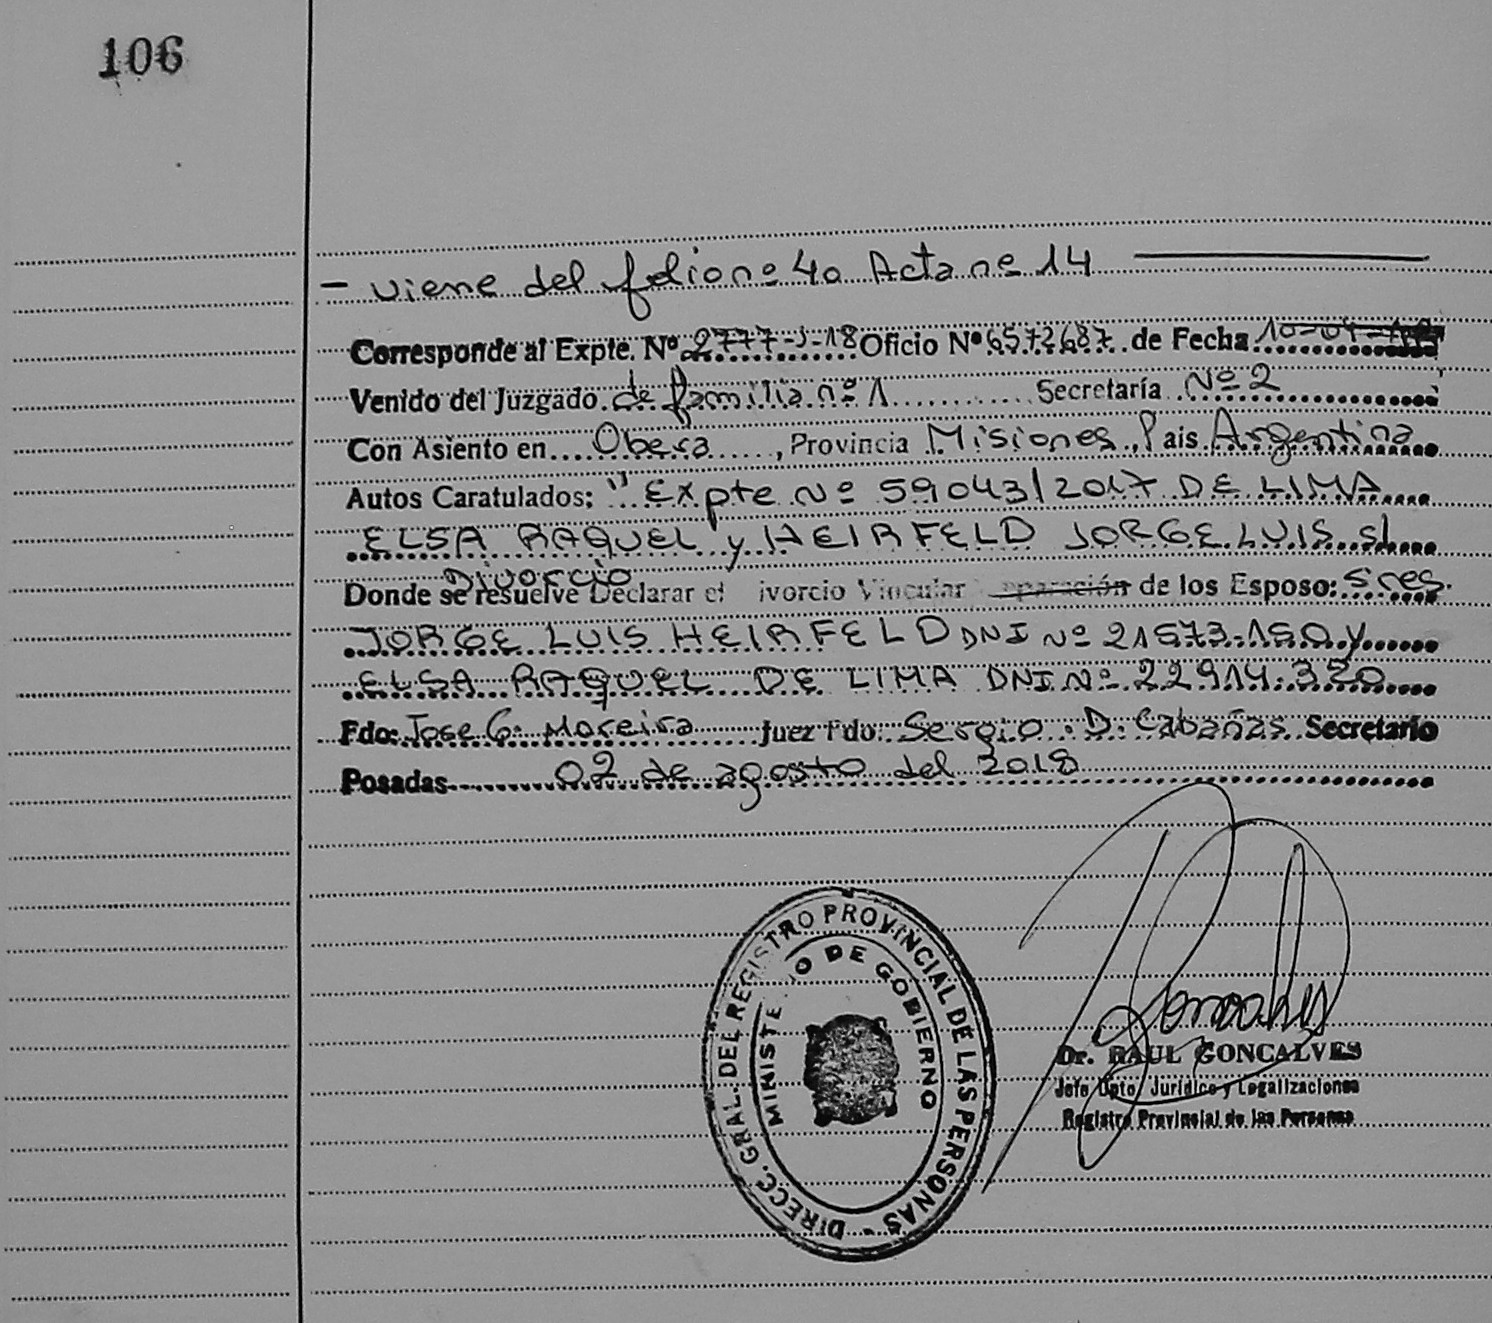 106
- viene del folio nº 40 Acta nº 14
Corresponde al Expte. Nº 2777-J-18 Oficio Nº 6572687 de Fecha 10-04-
Venido del Juzgado de familia nº 1 Secretaría Nº 2
Con Asiento en Obera, Provincia Misiones, Pais Argentina
Autos Caratulados: "Expte Nº 59043/2017 DE LIMA
ELSA RAQUEL y HEIRFELD JORGE LUIS s/
Divorcio
Donde se resuelve Declarar el ivorcio Vincular eparación de los Esposo: Sres.
JORGE LUIS HEIRFELD DNI Nº 21573.150 y
ELSA RAQUEL DE LIMA DNI Nº 22914.320
Fdo: Jose G. Moreira Juez Fdo: Sergio D. Cabañas Secretario
Posadas 02 de agosto del 2018
DIRECC. GRAL. DEL REGISTRO PROVINCIAL DE LAS PERSONAS -
MINISTE IO DE GOBIERNO
Dr. RAUL GONCALVES
Jefe Dpto. Jurídico y Legalizaciones
Registro Provincial de las Personas